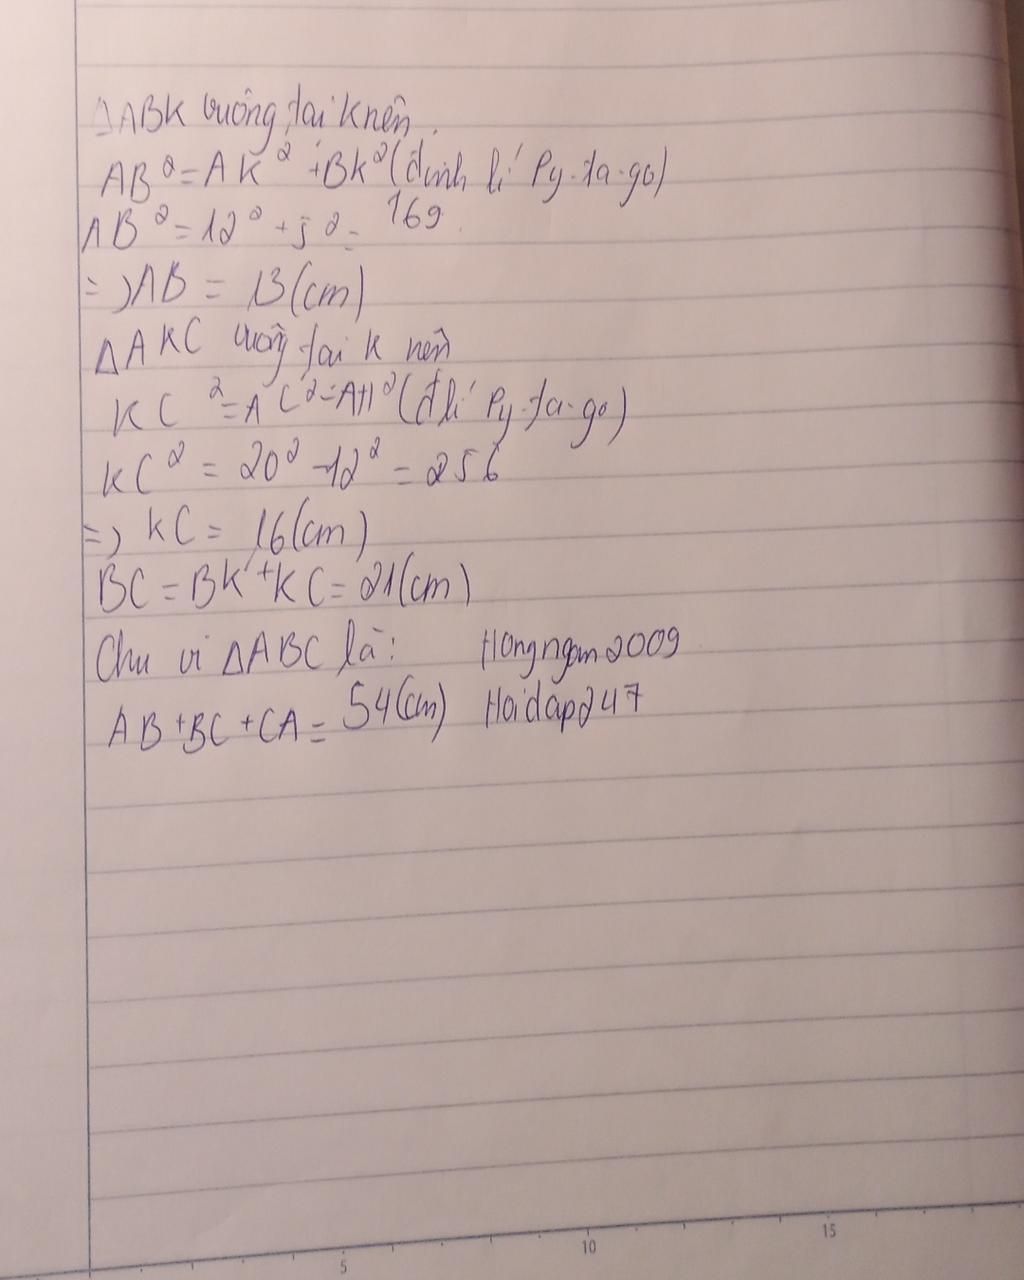 ΔABK vuông tại K nên.
AB² = AK² + BK² (định lí Py-ta-go)
AB² = 12² + 5² = 169
=> AB = 13 (cm)
ΔAKC vuông tại K nên
KC² = AC² = AH² (đlí Py-ta-go)
KC² = 20² - 12² = 256
=> KC = 16 (cm)
BC = BK + KC = 21 (cm)
Chu vi ΔABC là: Hongngam2009
AB + BC + CA = 54 (cm) Hoidap247
5 10 15